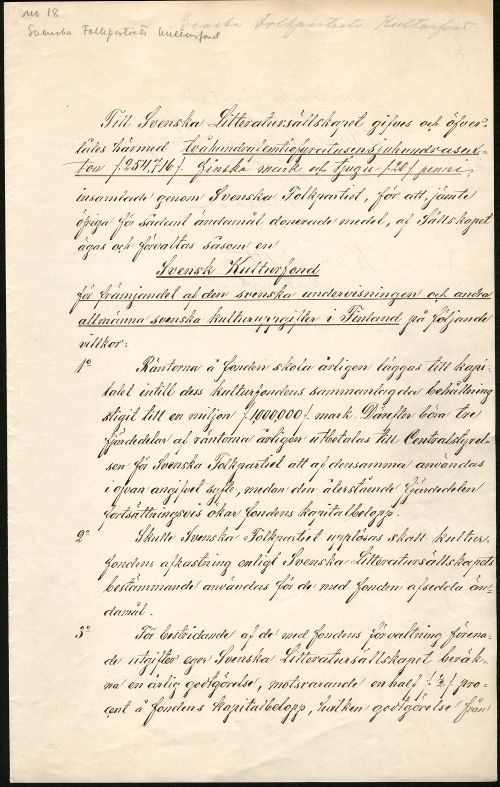 no 18
Svenska Folkpartiets Kulturfond
Svenska Folkpartiets Kulturfond
Till Svenska Litteratursällskapet gifves och öfver-
låtes härmed tvåhundrafemtiofyratusensjuhundrasext-
ton /:254,716:/ finska mark och tjugu /:20:/ penni,
insamlade genom Svenska Folkpartiet, för att, jämte
öfriga för sådant ändamål donerade medel, af Sällskapet
ägas och förvaltas såsom en
Svensk Kulturfond
för främjandet af den svenska undervisningen och andra
allmänna svenska kulturuppgifter i Finland på följande
villkor:
1º Räntorna å fonden skola årligen läggas till kapi-
talet intill dess kulturfondens sammanlagda behållning
stigit till en miljon /:1000,000:/ mark. Därefter böra tre
fjärdedelar af räntorna årligen utbetalas till Centralstyrel-
sen för Svenska Folkpartiet att af densamma användas
i ofvan angifvet syfte, medan den återstående fjärdedelen
fortsättningsvis ökar fondens kapitalbelopp.
2º Skulle Svenska Folkpartiet upplösas skall kultur-
fondens afkastning enligt Svenska Litteratursällskapets
bestämmande användas för de med fonden afsedda än-
damål.
3º För bestridande af de med fondens förvaltning förena-
de utgifter eger Svenska Litteratursällskapet beräk-
na en årlig godtgörelse, motsvarande en half /:½:/ pro-
cent å fondens kapitalbelopp, hvilken godtgörelse från